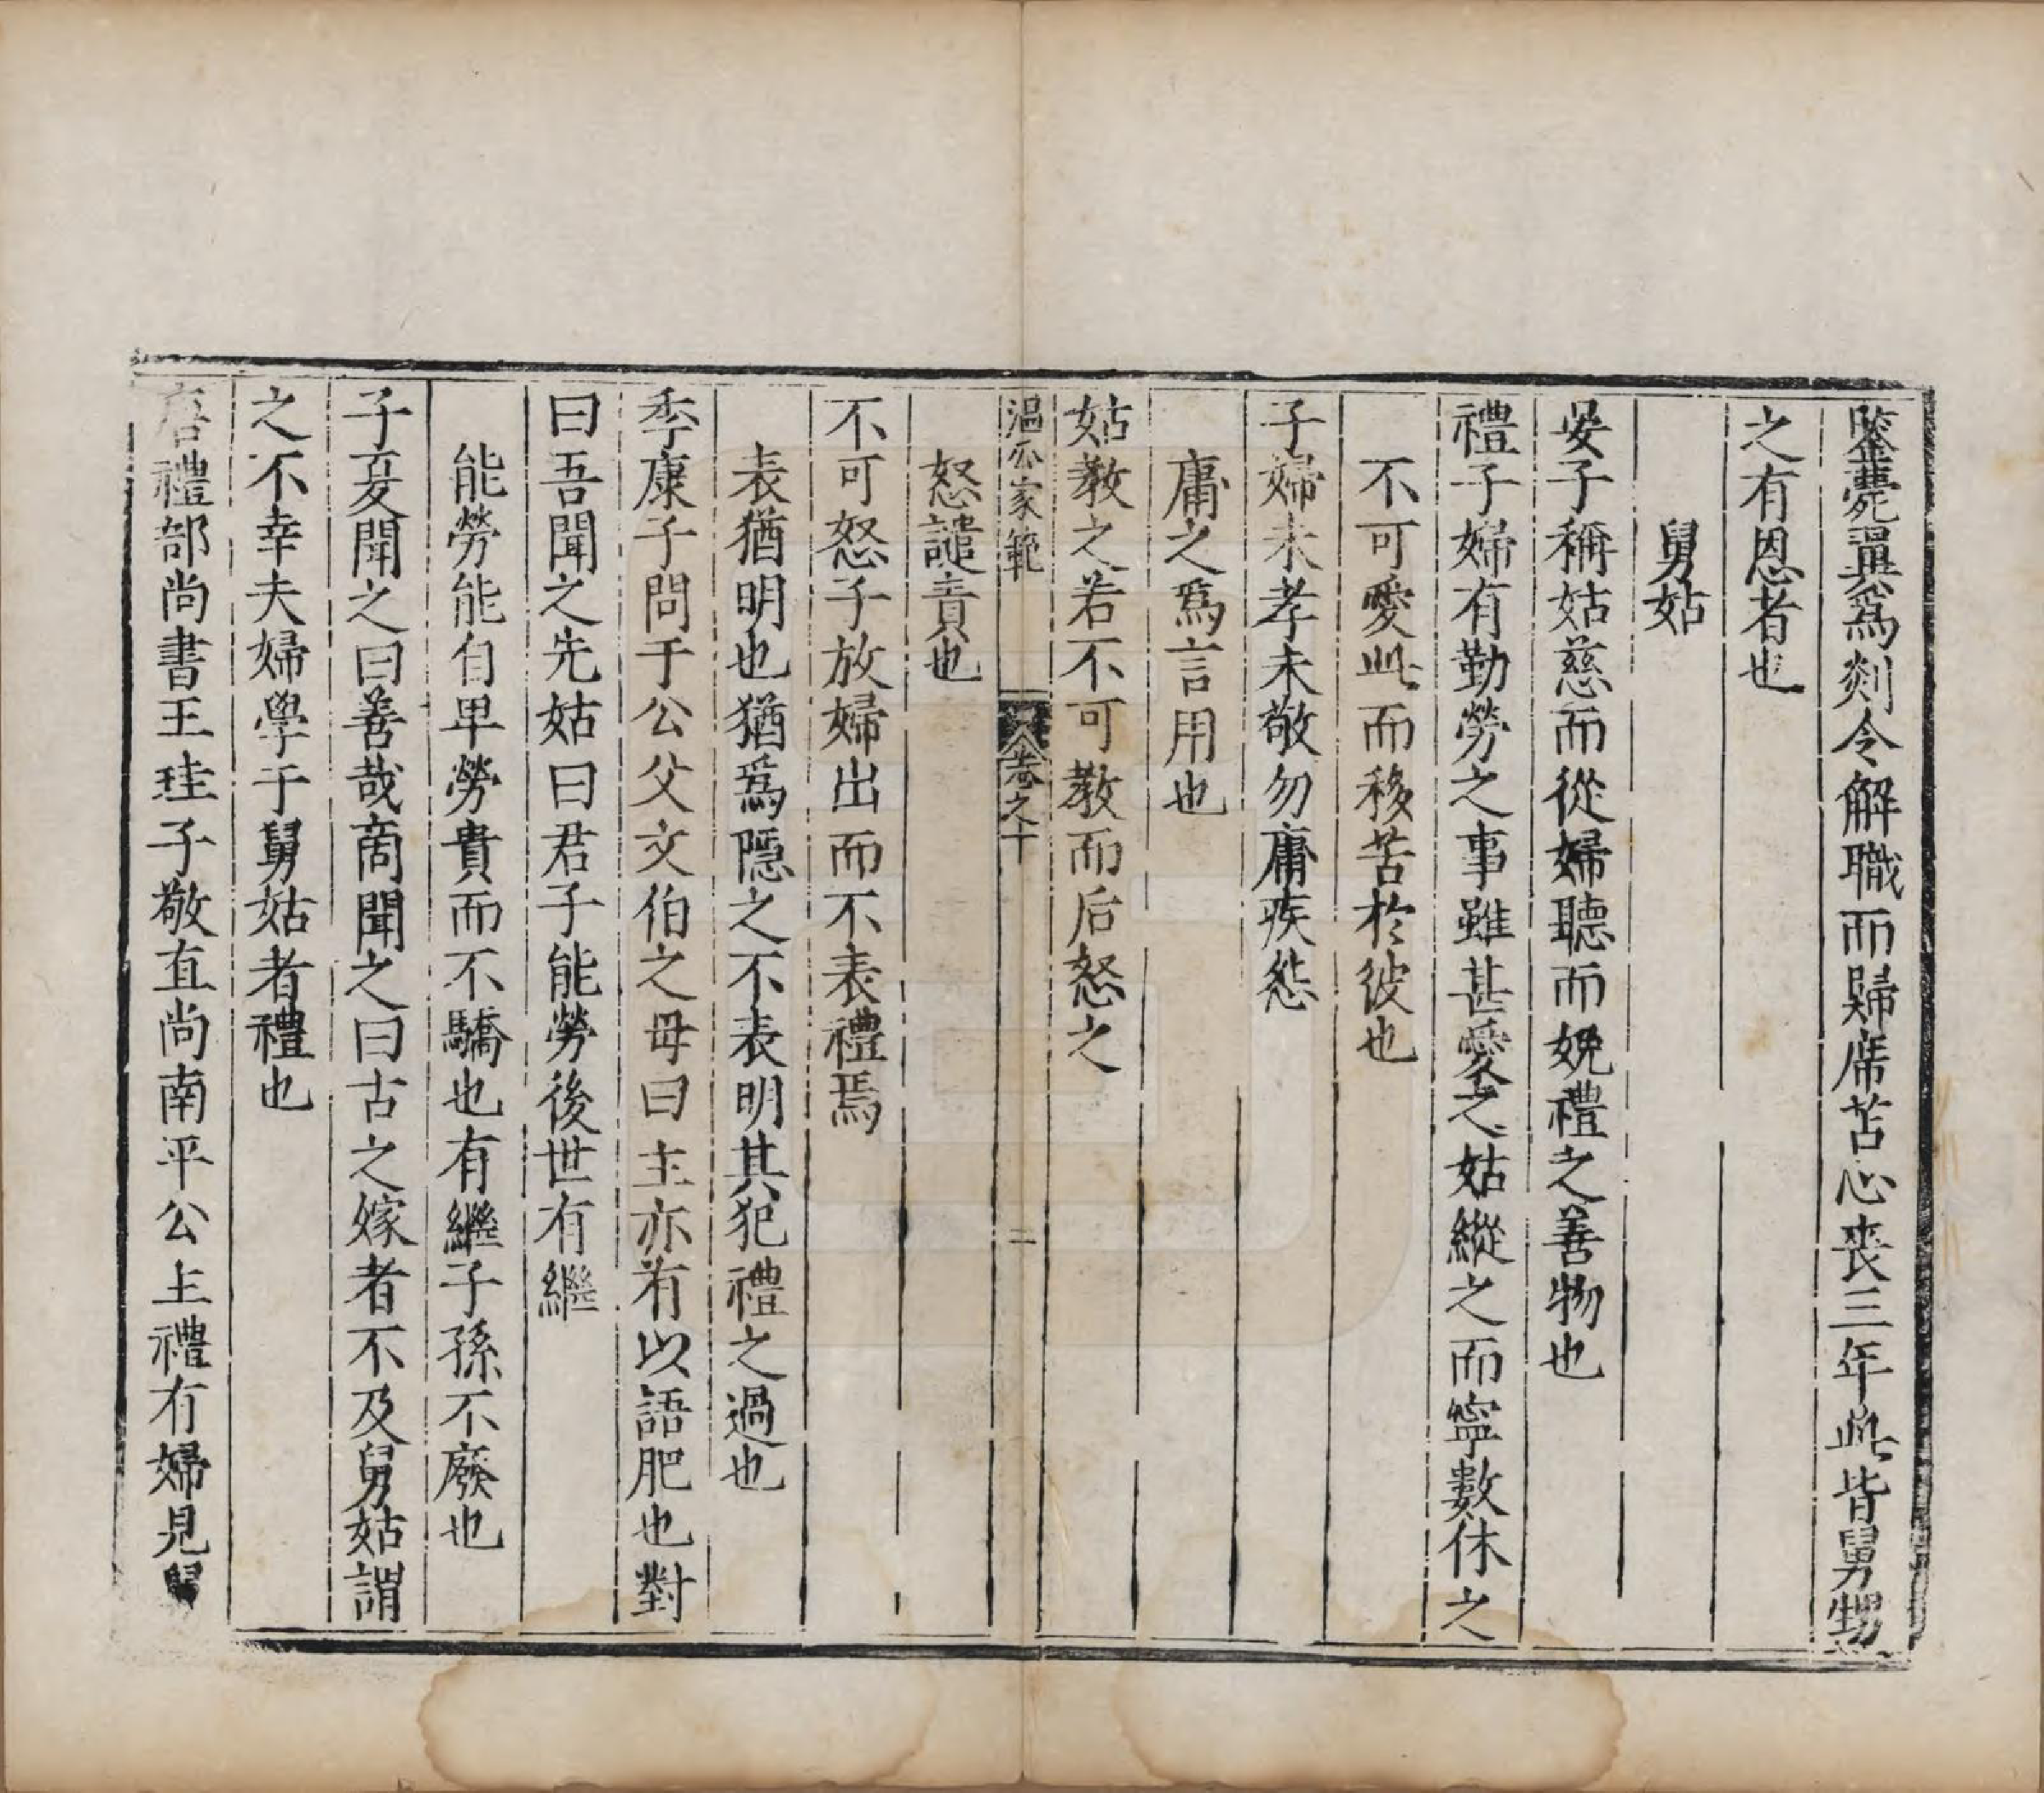 鑒薨翼爲剡令解職而歸席苫心喪三年此皆舅甥
之有恩者也
舅姑
晏子稱姑慈而從婦聽而婉禮之善物也
禮子婦有勤勞之事雖甚愛之姑縱之而寧數休之
不可愛此而移苦於彼也
子婦未孝未敬勿庸疾怨
庸之爲言用也
姑教之若不可教而后怒之
溫公家範
卷之十
二
怒譴責也
不可怒子放婦出而不表禮焉
表猶明也猶爲隱之不表明其犯禮之過也
季康子問于公父文伯之母曰主亦有以語肥也對
曰吾聞之先姑曰君子能勞後世有繼
能勞能自卑勞貴而不驕也有繼子孫不廢也
子夏聞之曰善哉商聞之曰古之嫁者不及舅姑謂
之不幸夫婦學于舅姑者禮也
唐禮部尚書王珪子敬直尚南平公主禮有婦見舅